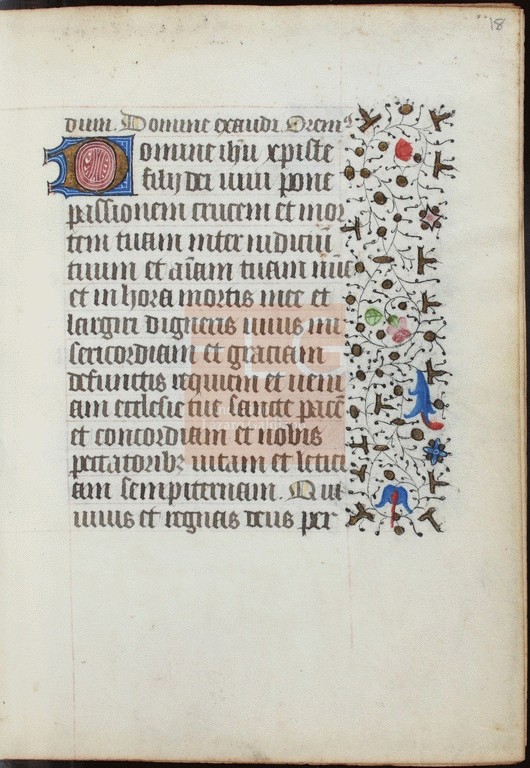 18
dium. Domine exaudi. Orem⁹
Domine ihu xpiste
filij dei uiui pone
passionem crucem et mor
tem tuam inter iudiciū
tuum et aīam tuam nūc
et in hora mortis mee et
largiri digneris uiuis mi
sericordiam et graciam
defunctis requiem et ueni
am ecclesie tue sancte pacē
et concordiam et nobis
peccatoribꝫ uitam et letici
am sempiternam. Qui
uiuis et regnas deus per